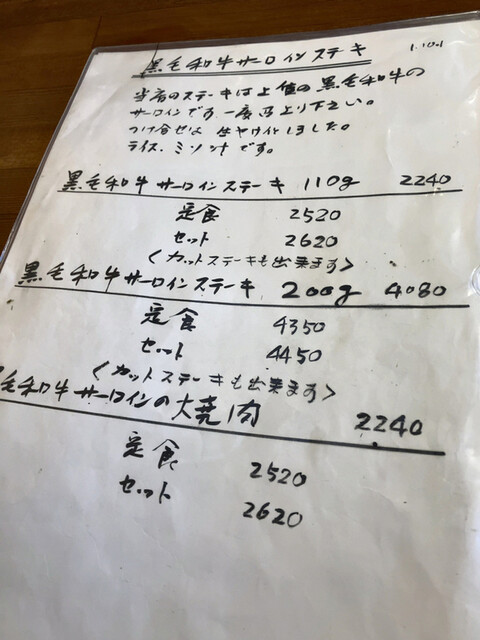 黒毛和牛サーロインステーキ
1.10.1
当店のステーキは上値の黒毛和牛の
サーロインです 一度召上り下さい。
つけ合せは 生やけにしました。
ライス、ミソ汁です。
黒毛和牛 サーロインステーキ 110g 2240
定食 2520
セット 2620
<カットステーキも出来ます>
黒毛和牛サーロインステーキ 200g 4080
定食 4350
セット 4450
<カットステーキも出来ます>
毛和牛サーロインの焼肉 2240
定食 2520
セット 2620